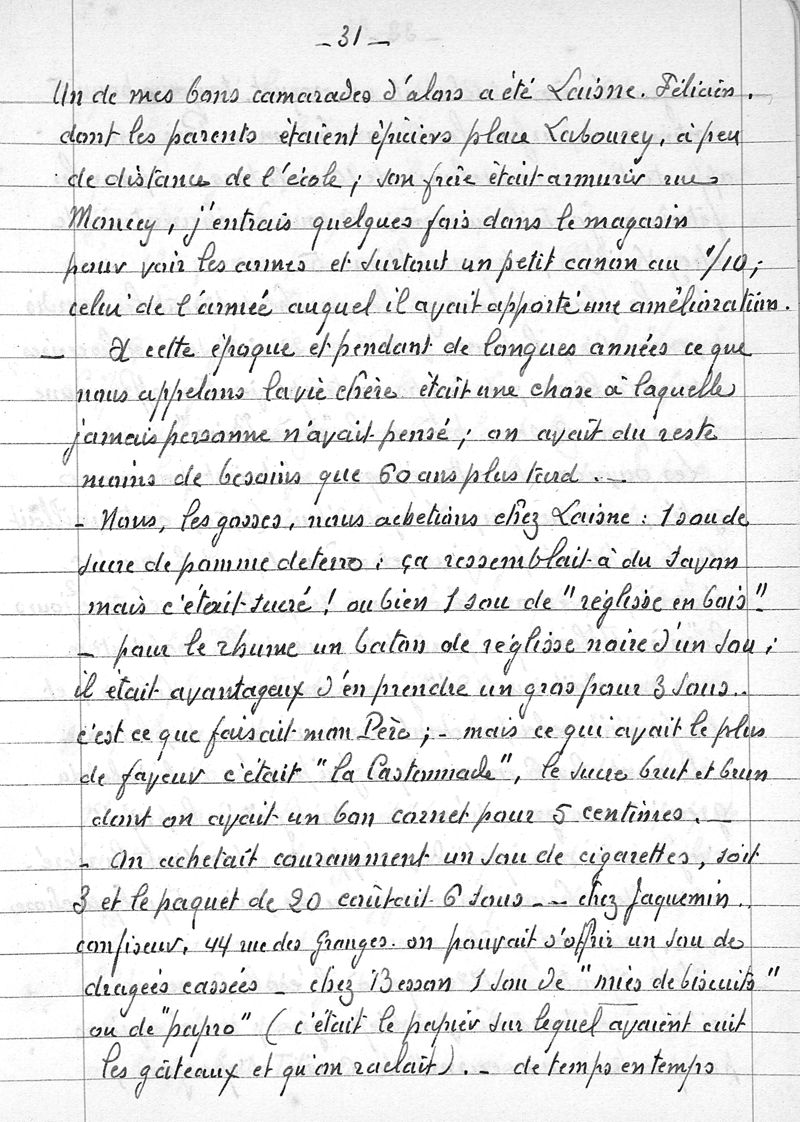 - 31 -
Un de mes bons camarades d'alors a été Laisne. Félicien.
dont les parents étaient épiciers place Labourey, à peu
de distance de l'école ; son frère était armurier rue
Moncey, j'entrais quelques fois dans le magasin
pour voir les armes et surtout un petit canon au 1/10 ;
celui de l'armée auquel il avait apporté une amélioration.
— A cette époque et pendant de longues années ce que
nous appelons la vie chère était une chose à laquelle
jamais personne n'avait pensé ; on avait du reste
moins de besoins que 60 ans plus tard. —
- Nous, les gosses, nous achetions chez Laisne : 1 sou de
sucre de pomme de terre ; ça ressemblait à du savon
mais c'était sucré ! ou bien 1 sou de "réglisse en bois"
- pour le rhume un baton de réglisse noire d'un sou ;
il était avantageux d'en prendre un gros pour 3 sous..
c'est ce que faisait mon Père ; - mais ce qui avait le plus
de faveur c'était "la Castonnade", le sucre brut et brun
dont on avait un bon cornet pour 5 centimes. —
- On achetait couramment un sou de cigarettes, soit
3 et le paquet de 20 coûtait 6 sous - - chez Jaquemin.
confiseur, 44 rue des Granges. on pouvait s'offrir un sou de
dragées cassées - chez Besson 1 sou de "miés de biscuits"
ou de "papro" ( c'était le papier sur lequel avaient cuit
les gâteaux et qu'on raclait). - de temps en temps